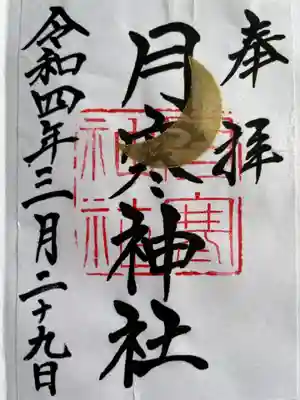 奉拝
月寒神社
令和四年三月二十九日
月寒神社